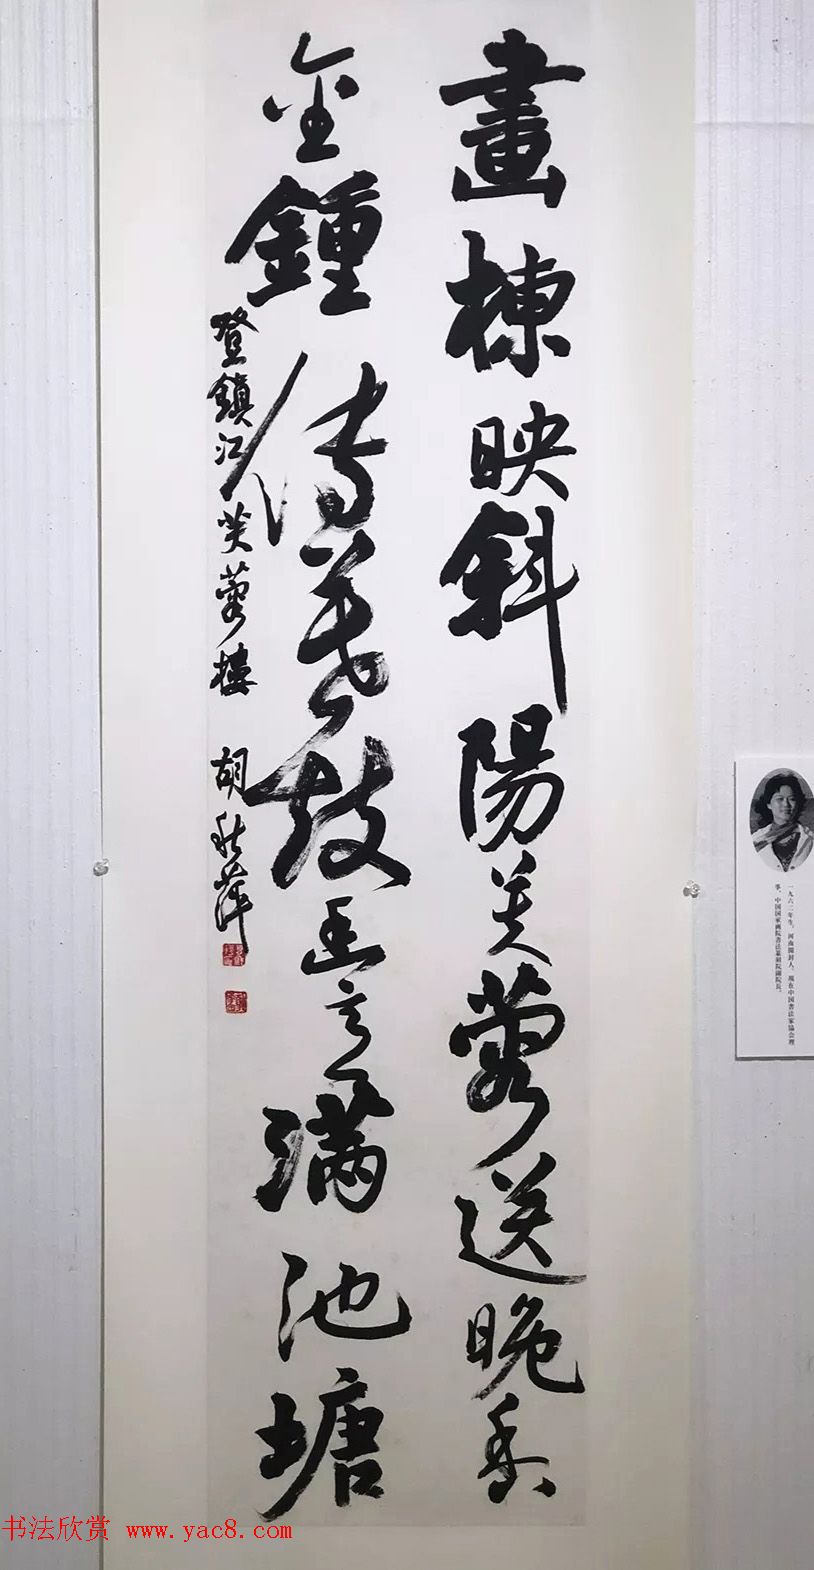 畫棟映斜陽芙蓉送晚香
金鍾傳暮鼓滿池塘
登鎮江芙蓉樓 胡秋萍
一九六二年生，河南開封人，現在中国書法家協会理
事、中国国家画院書法篆刻院副院長。
书法欣赏 www.yac8.com